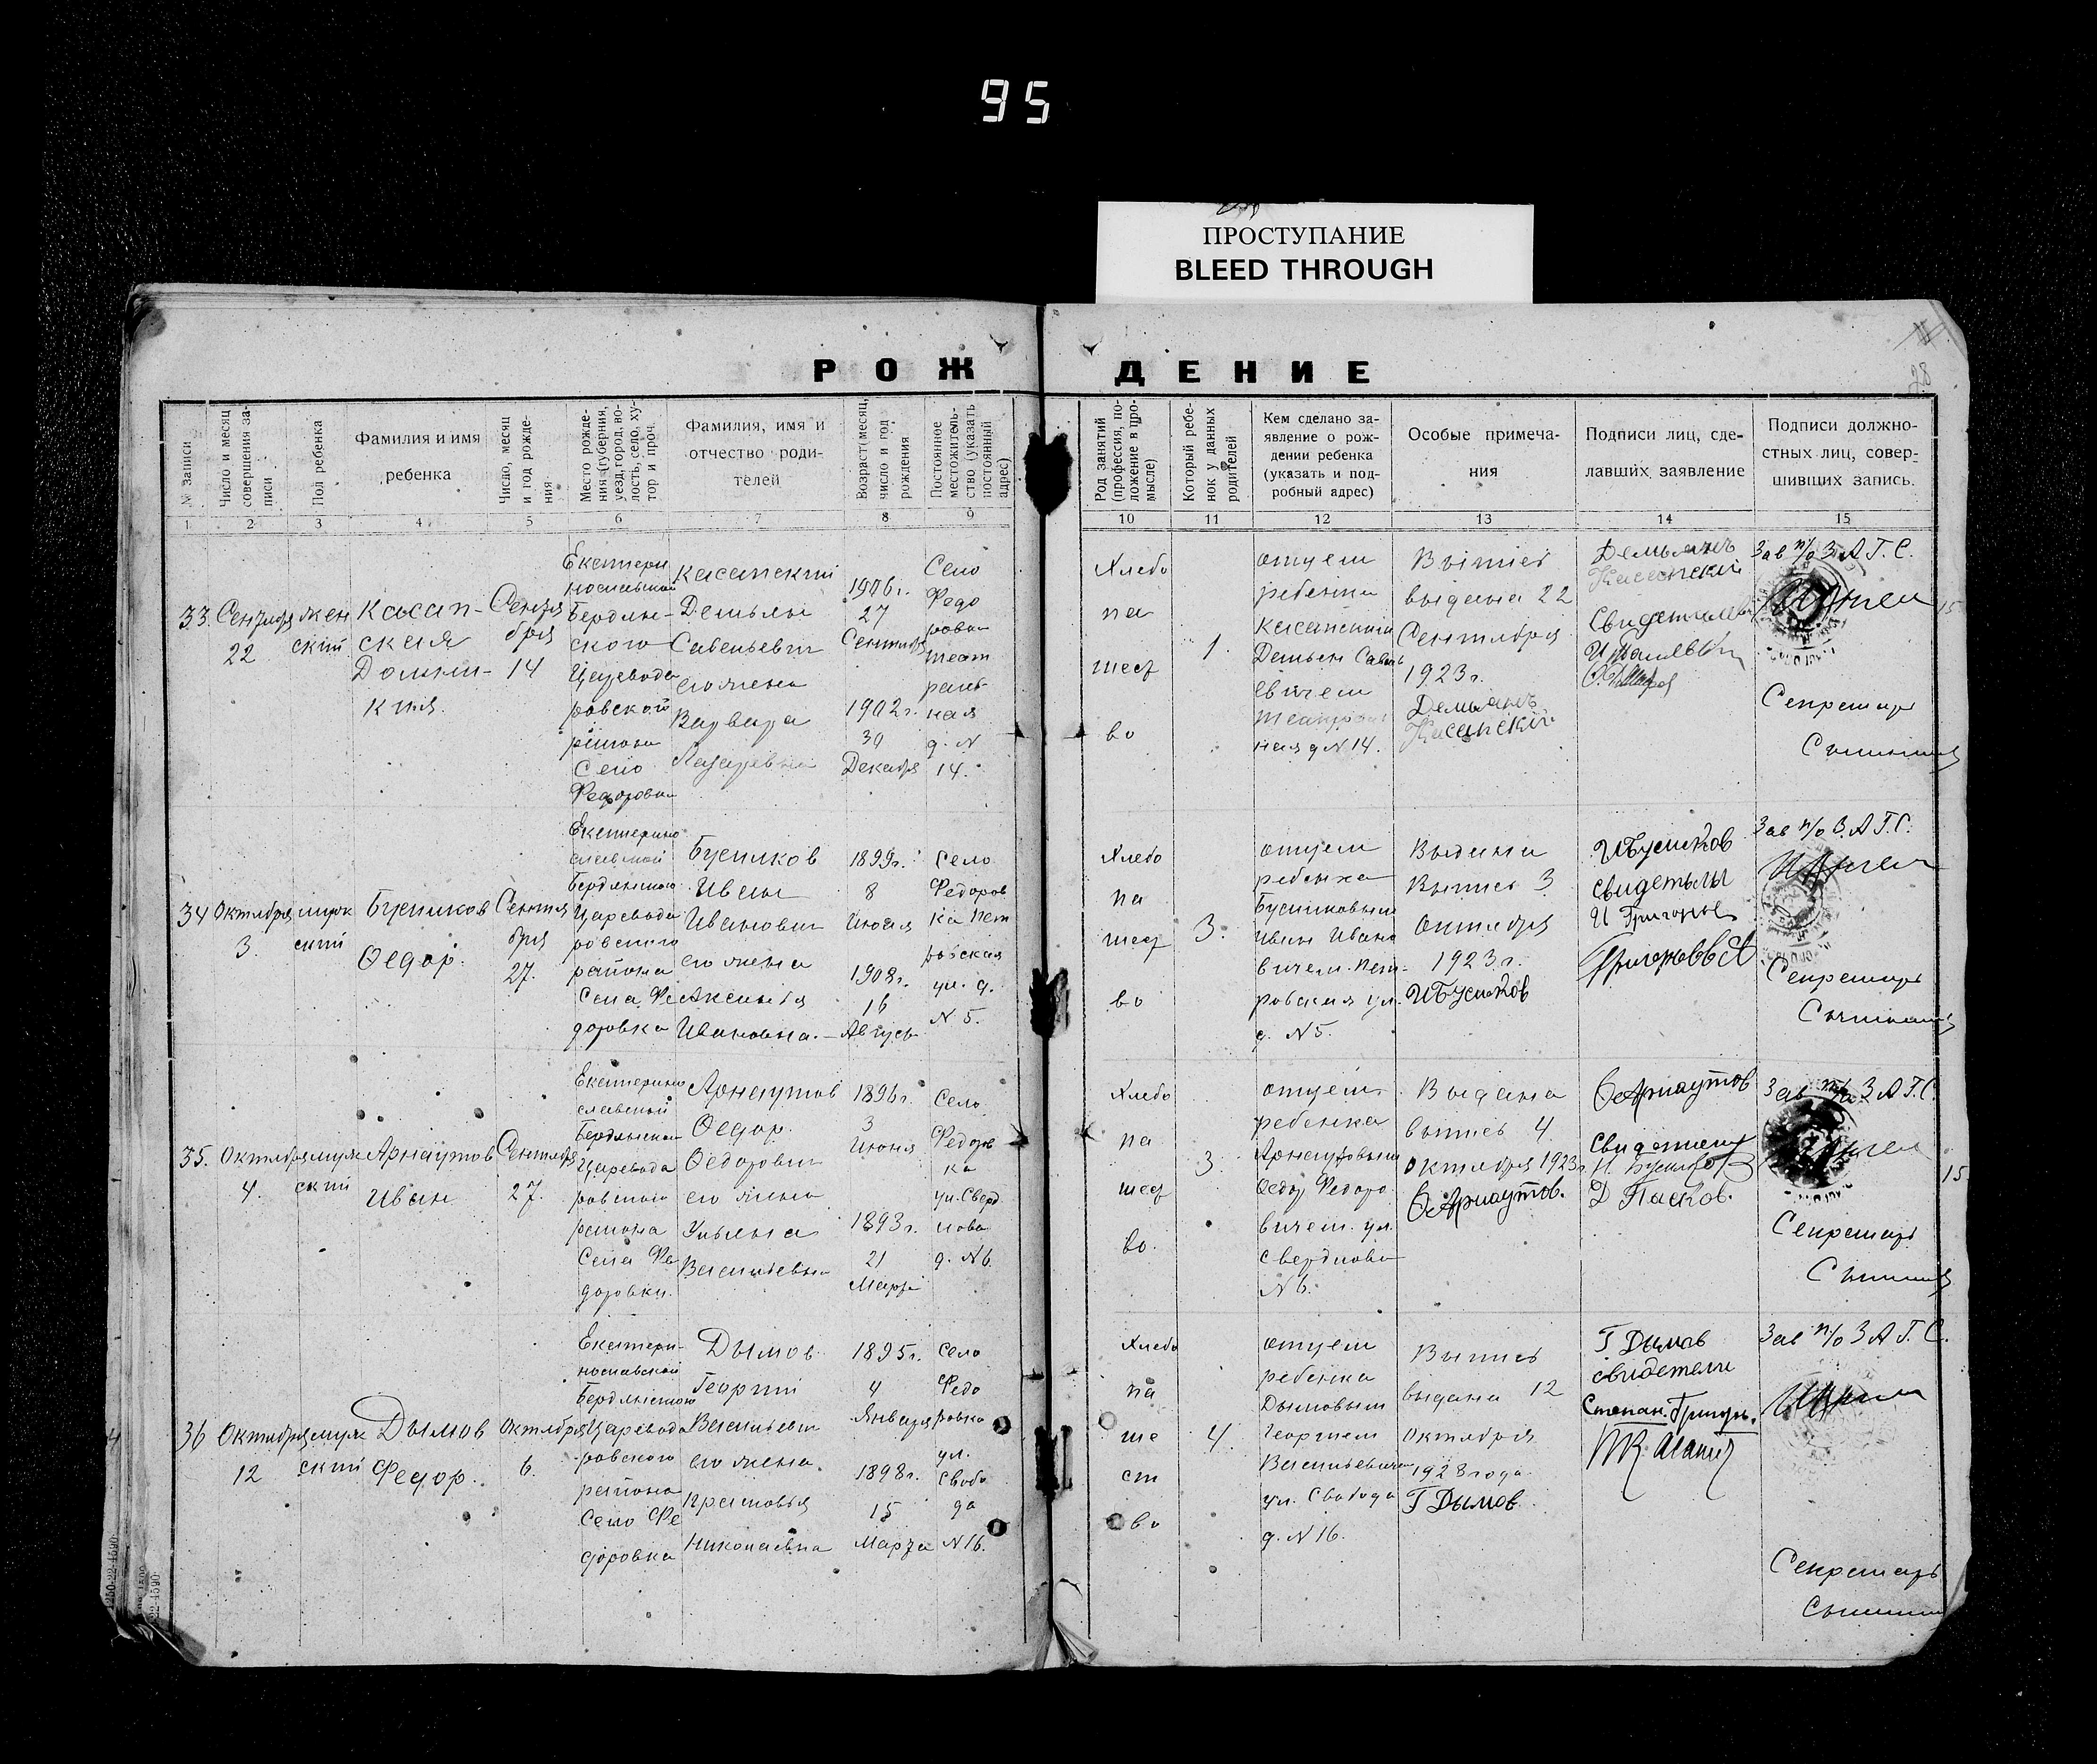 95
ПРОСТУПАНИЕ
BLEED THROUGH
28
РОЖДЕНИЕ
№ записи
Число и месяц совершения записи
Пол ребенка
Фамилия и имя
ребенка
Число, месяц и год рождения
Место рождения (губерния, уезд, город, волость, село, хутор и проч.
Фамилия, имя и
отчество роди-
телей
Возраст (месяц, число и год рождения
Постоянное местожительство (указать постоянный адрес)
Род занятий (профессия, положение в промысле)
Который ребенок у данных родителей
Кем сделано за-
явление о рож-
дении ребенка
(указать и под-
робный адрес)
Особые примеча-
ния
Подписи лиц, сде-
лавших заявление
Подписи должно-
стных лиц, совер-
шивших запись.
1 2 3 4 5 6 7 8 9 10 11 12 13 14 15
33.
Сентября
22
жен
ский
Касап-
ская
Сентя
бря
14
Екатери
нославской
Бердян-
ского
Царевода
ровской
района
Село
Федоровка
Касапский
Демьян
Савельевич
его жена
Варвара
Лазаревна
1906г.
27
Сентября
1902г.
30
Декабря
Село
Федо
ровка
театр
раль-
ная
д. N
14.
Хлебо
па
шест
во
1.
отцем
ребенка
Касапским
Демьян Савель
евичем
ная д N 14.
Выпись
выдана 22
Сентября
1923г.
Демьянъ
Касапский
Демьянъ
Касапский
Свидетели
Зав п/о З.А.Г.С.
Секретарь
34
Октября
3.
муж
ский
Бусиков
Ѳедор.
Сентя
бря
27.
Екатерино
славской
Бердянского
Царевода
ровского
района
Села Фе
доровка
Бусиков
Иван
Иванович
его жена
Аксинья
Ивановна.
1899г.
8
Июля
1908г.
16
Август
Село
Федоров
ка Пет
ровская
ул. д.
N 5.
Хлебо
па
шест
во
3.
отцем
ребенка
Бусиковым
Иван Ивано
вичем. Пет-
ровская ул.
д. N5.
Выдана
Выпись 3
октября
1923г.
И Бусиков
И Бусиков
свидетели
И Григорьев
Зав п/о З.А.Г.С.
Секретарь
35.
Октября
4.
муж
ский
Арнаутов
Иван
Сентября
27.
Екатерино
славской
Бердянского
Царевода
ровского
района
Села Фе
доровки.
Арнаутов
Ѳедор.
Ѳедорович
его жена
Ульяна
Васильевна
1896г.
3
Июня
1893г.
21
Марта
Село
Федоров
ка
ул. Сверд
лова
д. N6.
Хлебо
па
шест
во.
3.
отцем
ребенка
Арнаутовым
Ѳедор Федоро
вичем. ул.
Свердлова
N 6.
Выдана
выпись 4.
октября 1923г.
Ѳ Арнаутов.
Ѳ Арнаутов
Свидетели
Д Пасков.
Зав п/о З А Г.С.
Секретарь
15
36
Октября
12
муж
ский
Дымов
Федор.
Октября
6.
Екатери-
нославской
Бердянского
Царевода
ровского
района
Село Фе
доровка
Дымов
Георгий
Васильевич
его жена
Прасковья
Николаевна
1895г.
4
Января
1898г.
15
Марта
Село
Федо
ровка
ул.
Свобо
да
N16.
Хлебо
па
ше
ст
во
4.
отцем
ребенка
Дымовым
Георгием
Васильевичем
ул. Свобода
д. N 16.
Выпись
выдана 12
Октября
1923 года
Г Дымов
Г Дымов
свидетели
Степан. Григорь.
Зав п/о З А Г. С.
Секретарь